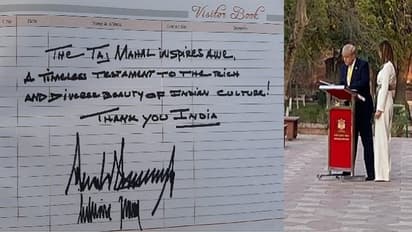 Visitor Book
THE TAJ MAHAL INSPIRES AWE,
A TIMELESS TESTAMENT TO THE RICH
AND DIVERSE BEAUTY OF INDIAN CULTURE!
THANK YOU INDIA